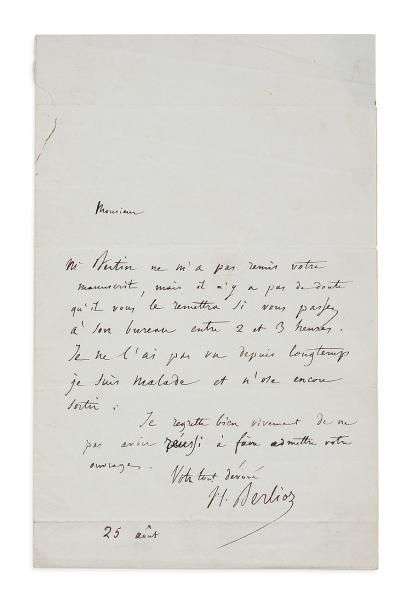 Monsieur
Mr Bertin ne m'a pas remis votre
manuscrit, mais il n'y a pas de doute
qu'il vous le remettra si vous passez
à son bureau entre 2 et 3 heures.
Je ne l'ai pas vu depuis longtemps
je suis malade et n'ose encore
sortir.
Je regrette bien vivement de ne
pas avoir réussi à faire admettre votre
ouvrage.
Votre tout dévoué
H. Berlioz
25 août